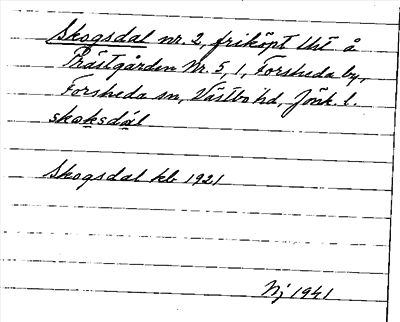 Skogsdal nr. 2, friköpt lht å
Prästgården Nr. 5, 1, Forsheda by,
Forsheda sn, Västbo hd, Jönk. l.
skoksdal
Skogsdal kb 1921
Nj 1941